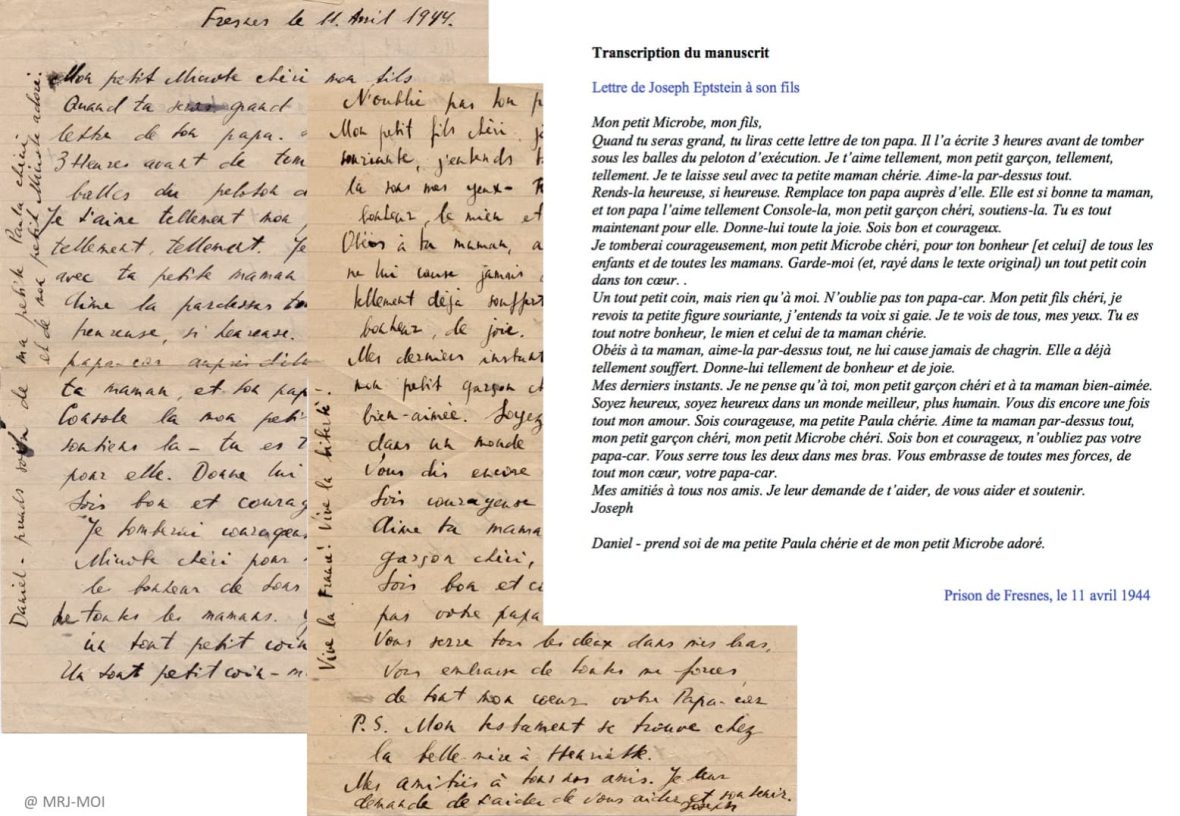 Fresnes le 11. Avril 1944.
Mon petit Minote chéri mon fils
Quand tu seras grand
lettre de ton papa.
3 Heures avant de tom
balles du peloton d
Je t'aime tellement mon
tellement, tellement. Je
avec ta petite maman
Aime la pardessus to
heureuse, si heureuse.
papa-car auprès d'elle
ta maman, et ton pap
Console la mon petit
soutiens la - tu es t
pour elle. Donne lui
Sois bon et courag
Je tomberai courageus
Minote chéri pour
le bonheur de tous
de toutes les mamans.
un tout petit coin
Un tout petit coin - m
Daniel - prends soin de ma petite Paula chérie
et de mon petit Minote adoré.
N'oublie pas ton p
Mon petit fils chéri, j
souriante, j'entends t
la sous mes yeux -
bonheur, le mien et
Obéis à ta maman, a
ne lui cause jamais
tellement déjà souffert
bonheur, de joie.
Mes derniers instant
mon petit garçon ch
bien-aimée. Soyez
dans un monde
Vous dis encore
Sois courageuse
Aime ta mama
garçon chéri,
Sois bon et c
pas votre papa
Vous serre tous les deux dans mes bras,
Vous embrasse de toutes mes forces,
de tout mon cœur votre Papa-car
P.S. Mon testament se trouve chez
la belle-mère à Henriette.
Mes amitiés à tous nos amis. Je leur
demande de t'aider, de vous aider et soutenir.
Joseph
Vive la France! Vive la liberté!
Transcription du manuscrit
Lettre de Joseph Eptstein à son fils
Mon petit Microbe, mon fils,
Quand tu seras grand, tu liras cette lettre de ton papa. Il l'a écrite 3 heures avant de tomber
sous les balles du peloton d'exécution. Je t'aime tellement, mon petit garçon, tellement,
tellement. Je te laisse seul avec ta petite maman chérie. Aime-la par-dessus tout.
Rends-la heureuse, si heureuse. Remplace ton papa auprès d'elle. Elle est si bonne ta maman,
et ton papa l'aime tellement Console-la, mon petit garçon chéri, soutiens-la. Tu es tout
maintenant pour elle. Donne-lui toute la joie. Sois bon et courageux.
Je tomberai courageusement, mon petit Microbe chéri, pour ton bonheur [et celui] de tous les
enfants et de toutes les mamans. Garde-moi (et, rayé dans le texte original) un tout petit coin
dans ton cœur. .
Un tout petit coin, mais rien qu'à moi. N'oublie pas ton papa-car. Mon petit fils chéri, je
revois ta petite figure souriante, j'entends ta voix si gaie. Je te vois de tous, mes yeux. Tu es
tout notre bonheur, le mien et celui de ta maman chérie.
Obéis à ta maman, aime-la par-dessus tout, ne lui cause jamais de chagrin. Elle a déjà
tellement souffert. Donne-lui tellement de bonheur et de joie.
Mes derniers instants. Je ne pense qu'à toi, mon petit garçon chéri et à ta maman bien-aimée.
Soyez heureux, soyez heureux dans un monde meilleur, plus humain. Vous dis encore une fois
tout mon amour. Sois courageuse, ma petite Paula chérie. Aime ta maman par-dessus tout,
mon petit garçon chéri, mon petit Microbe chéri. Sois bon et courageux, n'oubliez pas votre
papa-car. Vous serre tous les deux dans mes bras. Vous embrasse de toutes mes forces, de
tout mon cœur, votre papa-car.
Mes amitiés à tous nos amis. Je leur demande de t'aider, de vous aider et soutenir.
Joseph
Daniel - prend soi de ma petite Paula chérie et de mon petit Microbe adoré.
Prison de Fresnes, le 11 avril 1944
@ MRJ-MOI